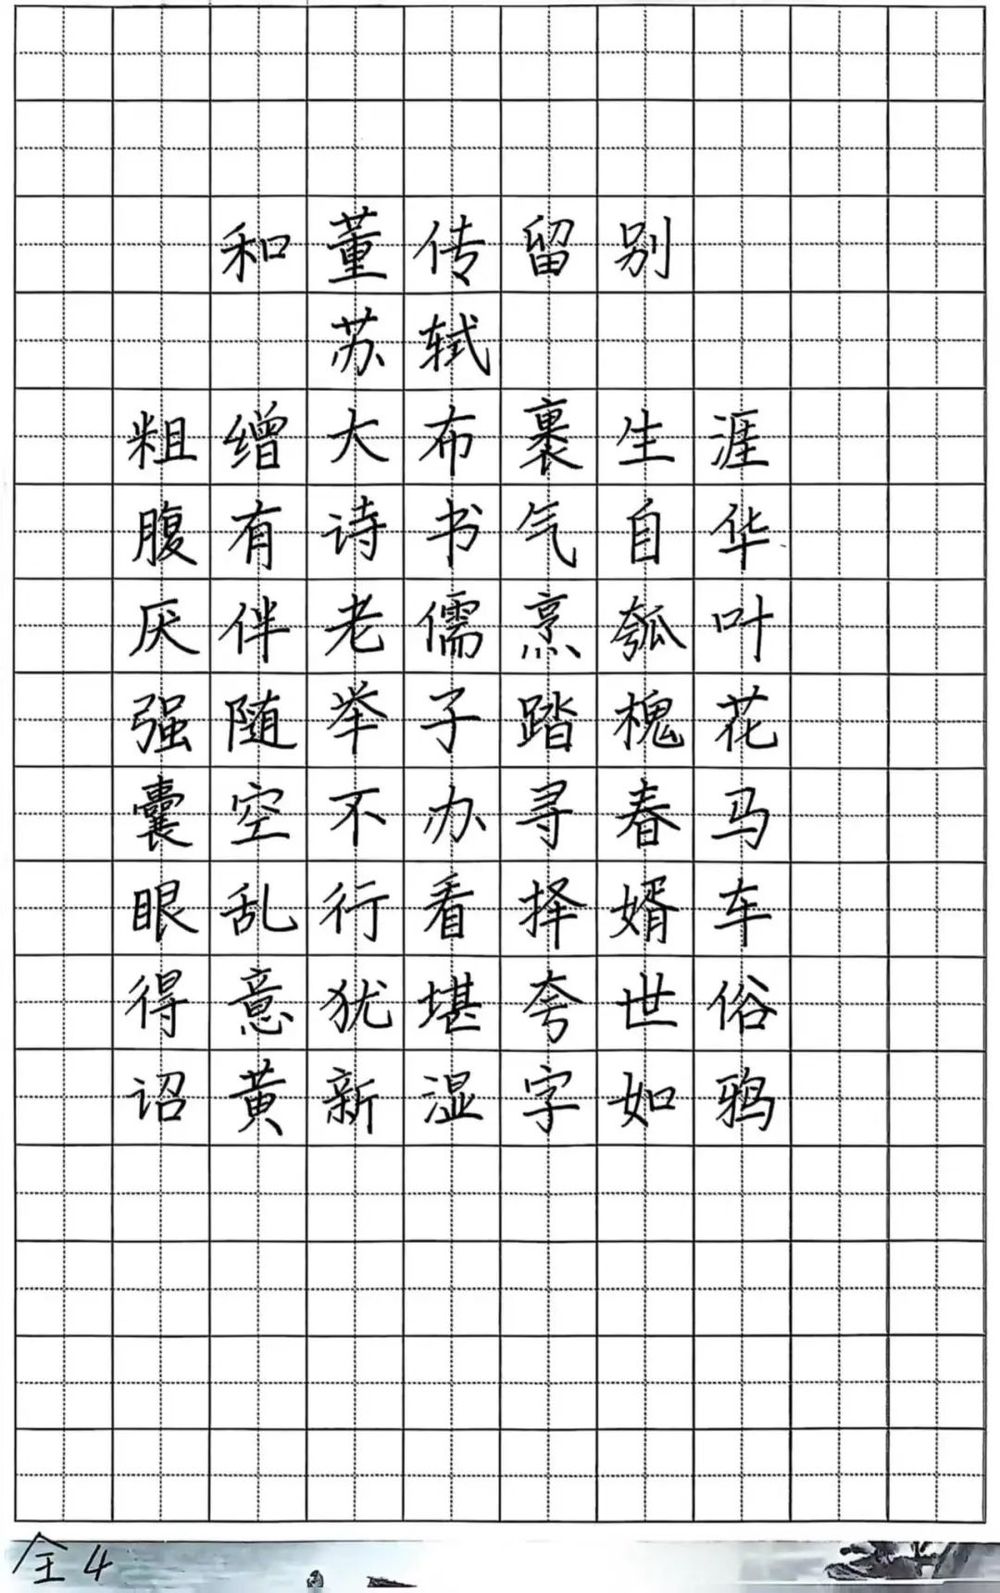 和董传留别
苏轼
粗缯大布裹生涯
腹有诗书气自华
厌伴老儒烹瓠叶
强随举子踏槐花
囊空不办寻春马
眼乱行看择婿车
得意犹堪夸世俗
诏黄新湿字如鸦
全4